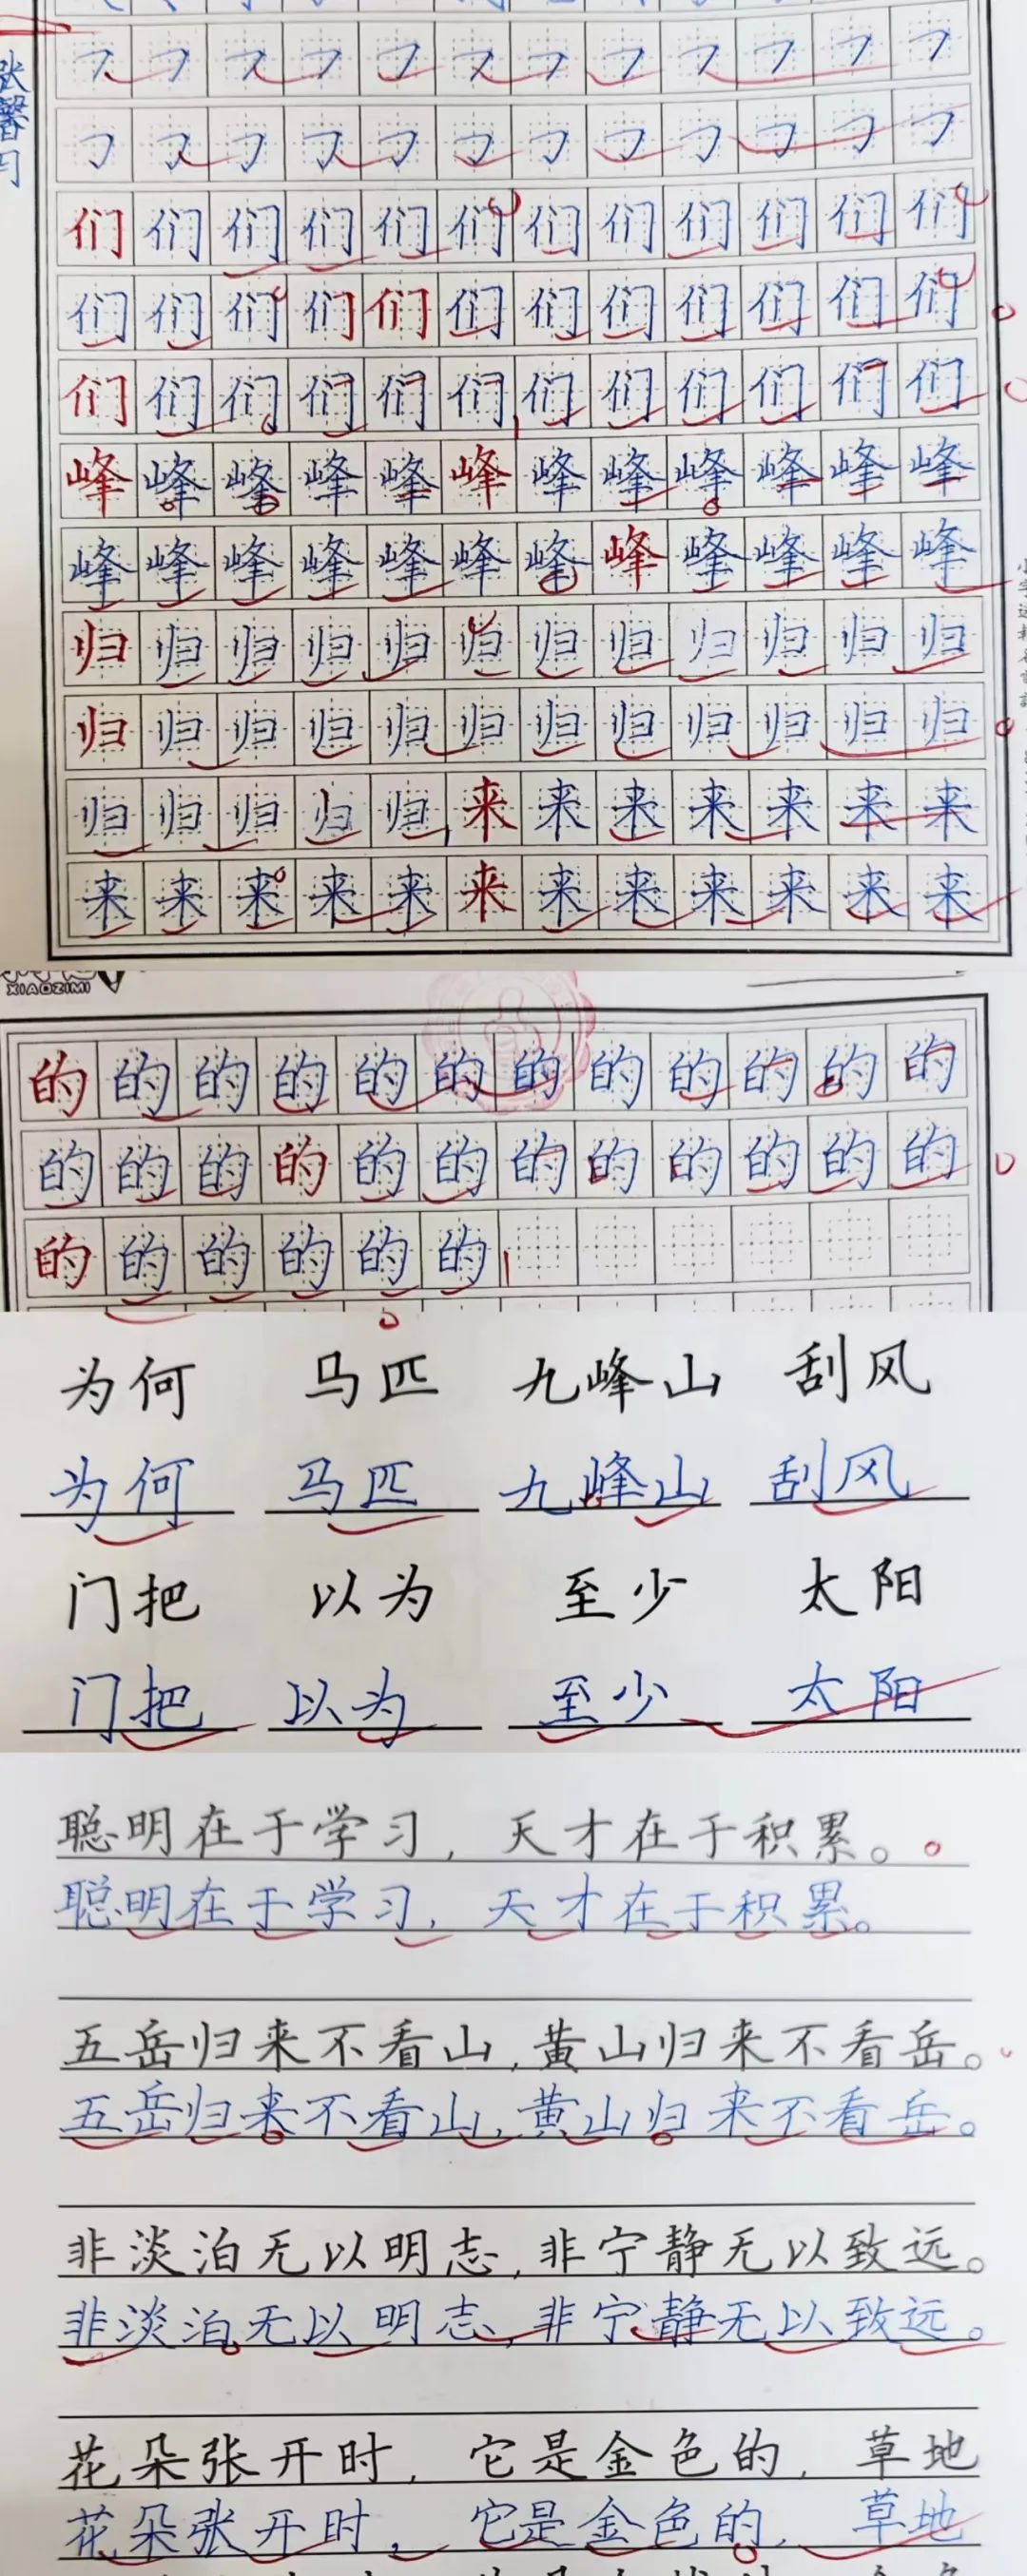 张馨
们们们们们们们们们们们们
们们们们们们们们们们们们
们们们们们们们们们们们们
峰峰峰峰峰峰峰峰峰峰峰峰
峰峰峰峰峰峰峰峰峰峰峰峰
归归归归归归归归归归归归
归归归归归归归归归归归归
归归归归归来来来来来来来
来来来来来来来来来来来来
XIAOZIMI
的的的的的的的的的的的的
的的的的的的的的的的的的
的的的的的的
为何 马匹 九峰山 刮风
为何 马匹 九峰山 刮风
门把 以为 至少 太阳
门把 以为 至少 太阳
聪明在于学习，天才在于积累。
聪明在于学习，天才在于积累。
五岳归来不看山，黄山归来不看岳。
五岳归来不看山，黄山归来不看岳。
非淡泊无以明志，非宁静无以致远。
非淡泊无以明志，非宁静无以致远。
花朵张开时，它是金色的，草地
花朵张开时，它是金色的，草地